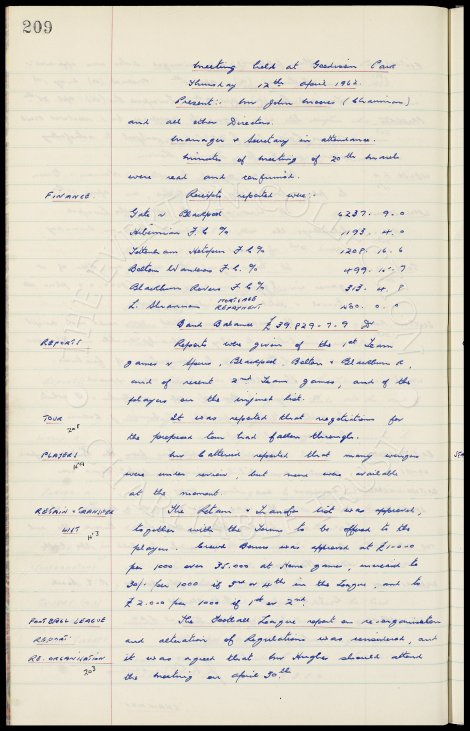 209
Meeting held at Goodison Park
Thursday 12th April 1962.
Present:- Mr John Moores (Chairman)
and all other Directors.
Manager & Secretary in attendance.
Minutes of Meeting of 20th March
were read and confirmed.
FINANCE. Receipts reported were:-
Gate v Blackpool 6237. 9. 0
Hibernian F.C. % 1193. 4. 0
Tottenham Hotspur F.C. % 1208. 16. 6
Bolton Wanderers F.C. % 499. 15. 7
Blackburn Rovers F.C. % 313. 4. 8
L. Shannon MORTGAGE REPAYMENT 450. 0. 0
Bank Balance £39,829. 7. 9 Dr
REPORTS Reports were given of the 1st Team
games v Spurs, Blackpool, Bolton & Blackburn R,
and of recent 2nd Team games, and of the
players on the injured list.
TOUR It was reported that negotiations for
208 the proposed tour had fallen through.
PLAYERS Mr Catterick reported that many wingers
were under review, but none were available
at the moment.
RETAIN & TRANSFER The Retain & Transfer list was approved,
LIST together with the Terms to be offered to the
players. Crowd Bonus was approved at £1.0.0
per 1000 over 35,000 at Home games, increased to
30/- per 1000 if 3rd or 4th in the League, and to
£2.0.0 per 1000 if 1st or 2nd.
FOOTBALL LEAGUE The Football League report on re-organisation
REPORT. and alteration of Regulations was considered, and
RE-ORGANISATION it was agreed that Mr Hughes should attend
203 the Meeting on April 30th